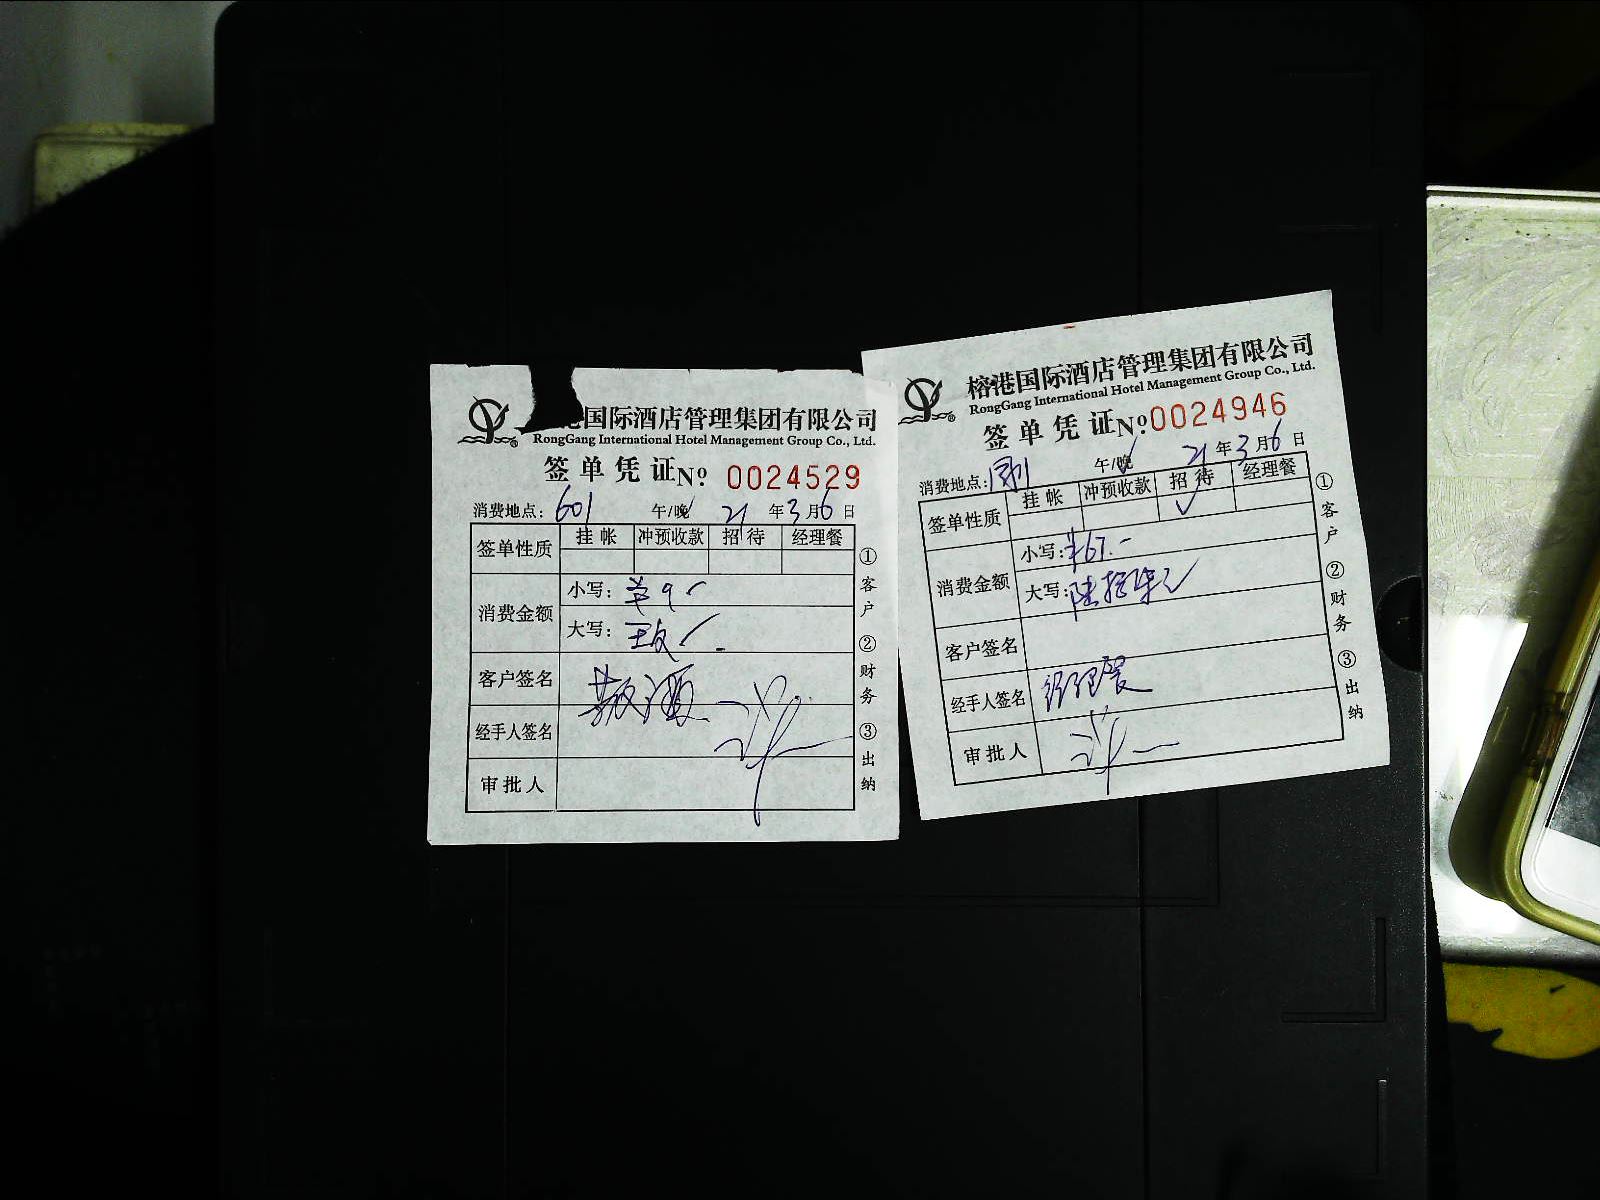 港国际酒店管理集团有限公司
RongGang International Hotel Management Group Co., Ltd.
签单凭证 No. 0024529
消费地点: 601 午/晚 21年3月6日
签单性质 挂帐 冲预收款 招待 经理餐
消费金额 小写: ¥9
大写:
客户签名
经手人签名
审批人
① 客户 ② 财务 ③ 出纳
榕港国际酒店管理集团有限公司
RongGang International Hotel Management Group Co., Ltd.
签单凭证 No. 0024946
消费地点: 午/晚 21年3月6日
签单性质 挂帐 冲预收款 招待 经理餐
✓
消费金额 小写: ¥67.-
大写: 陆拾柒元
客户签名
经手人签名 经理餐
审批人
① 客户 ② 财务 ③ 出纳